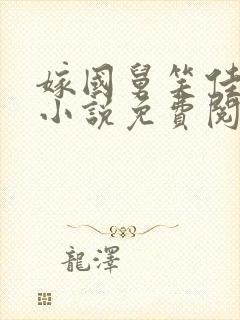 嫁國舅笑佳
小說免費閱
龍澤